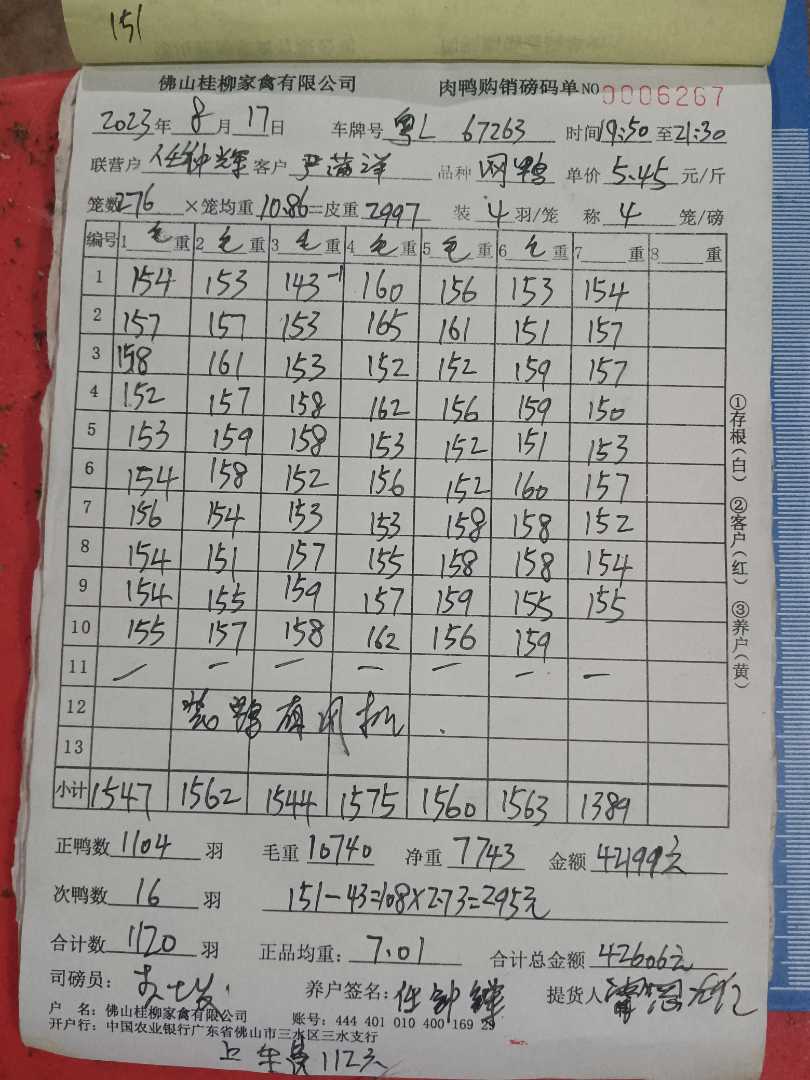 151
佛山桂柳家禽有限公司 肉鸭购销磅码单 NO 0006267
2023年 8月 17日 车牌号 粤L 67263 时间19:50至21:30
联营户 任钟辉 客户 品种 网鸭 单价 5.45 元/斤
笼数 276 ×笼均重 10.86 =皮重 2997 装 4 羽/笼 称 4 笼/磅
编号 1 毛 重 2 毛 重 3 毛 重 4 毛 重 5 毛 重 6 毛 重 7 重 8 重
1 154 153 143-1 160 156 153 154
2 157 157 153 165 161 151 157
3 158 161 153 152 152 159 157
4 152 157 158 162 156 159 150
5 153 159 158 153 152 151 153
6 154 158 152 156 152 160 157
7 156 154 153 153 158 158 152
8 154 151 157 155 158 158 154
9 154 155 159 157 159 155 155
10 155 157 158 162 156 159
11 一 一 一 一 一 一 一
12 装鸭有风机.
13
小计 1547 1562 1544 1575 1560 1563 1389
正鸭数 1104 羽 毛重 10740 净重 7743 金额 42199元
次鸭数 16 羽 151-43=108×2.73=295元
合计数 1120 羽 正品均重: 7.01 合计总金额 42606元
司磅员: 养户签名: 任钟辉 提货人
户 名: 佛山桂柳家禽有限公司 账号: 444 401 010 400 169 29
开户行: 中国农业银行广东省佛山市三水区三水支行
上车费112元
①存根(白) ②客户(红) ③养户(黄)